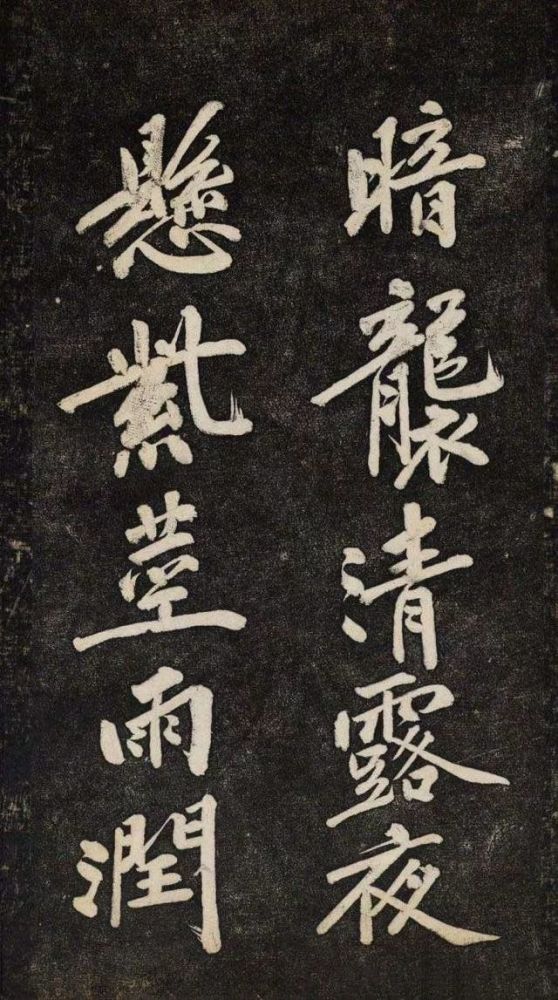 暗龍襲清露夜
懸紫莖雨潤